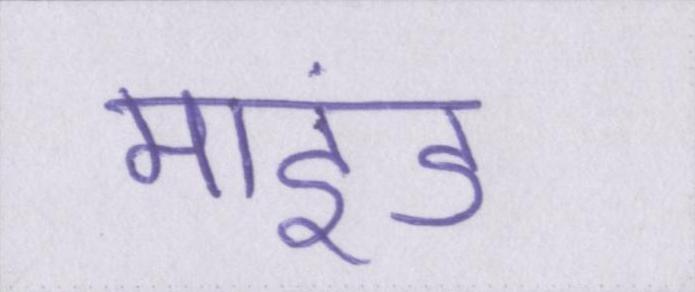 माइंड